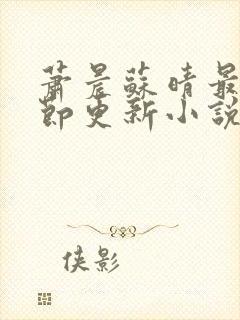 蕭晨蘇晴最
節更新小說
侠影